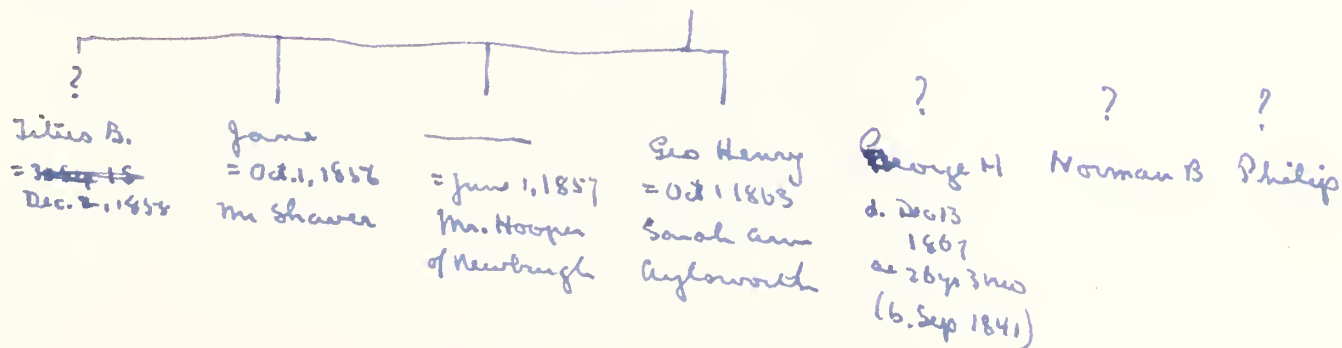 ?
Titus B.
= 30 Sep 15
Dec. 2, 1858
Jane
= Oct. 1, 1856
Mr Shaver
= June 1, 1857
Mr. Hooper
of Newburgh
Geo Henry
= Oct 1 1863
Sarah Ann
Aylsworth
?
George H
d. Dec 13
1867
ae 26 ys 3 mo
(b. Sep 1841)
?
Norman B
?
Philip